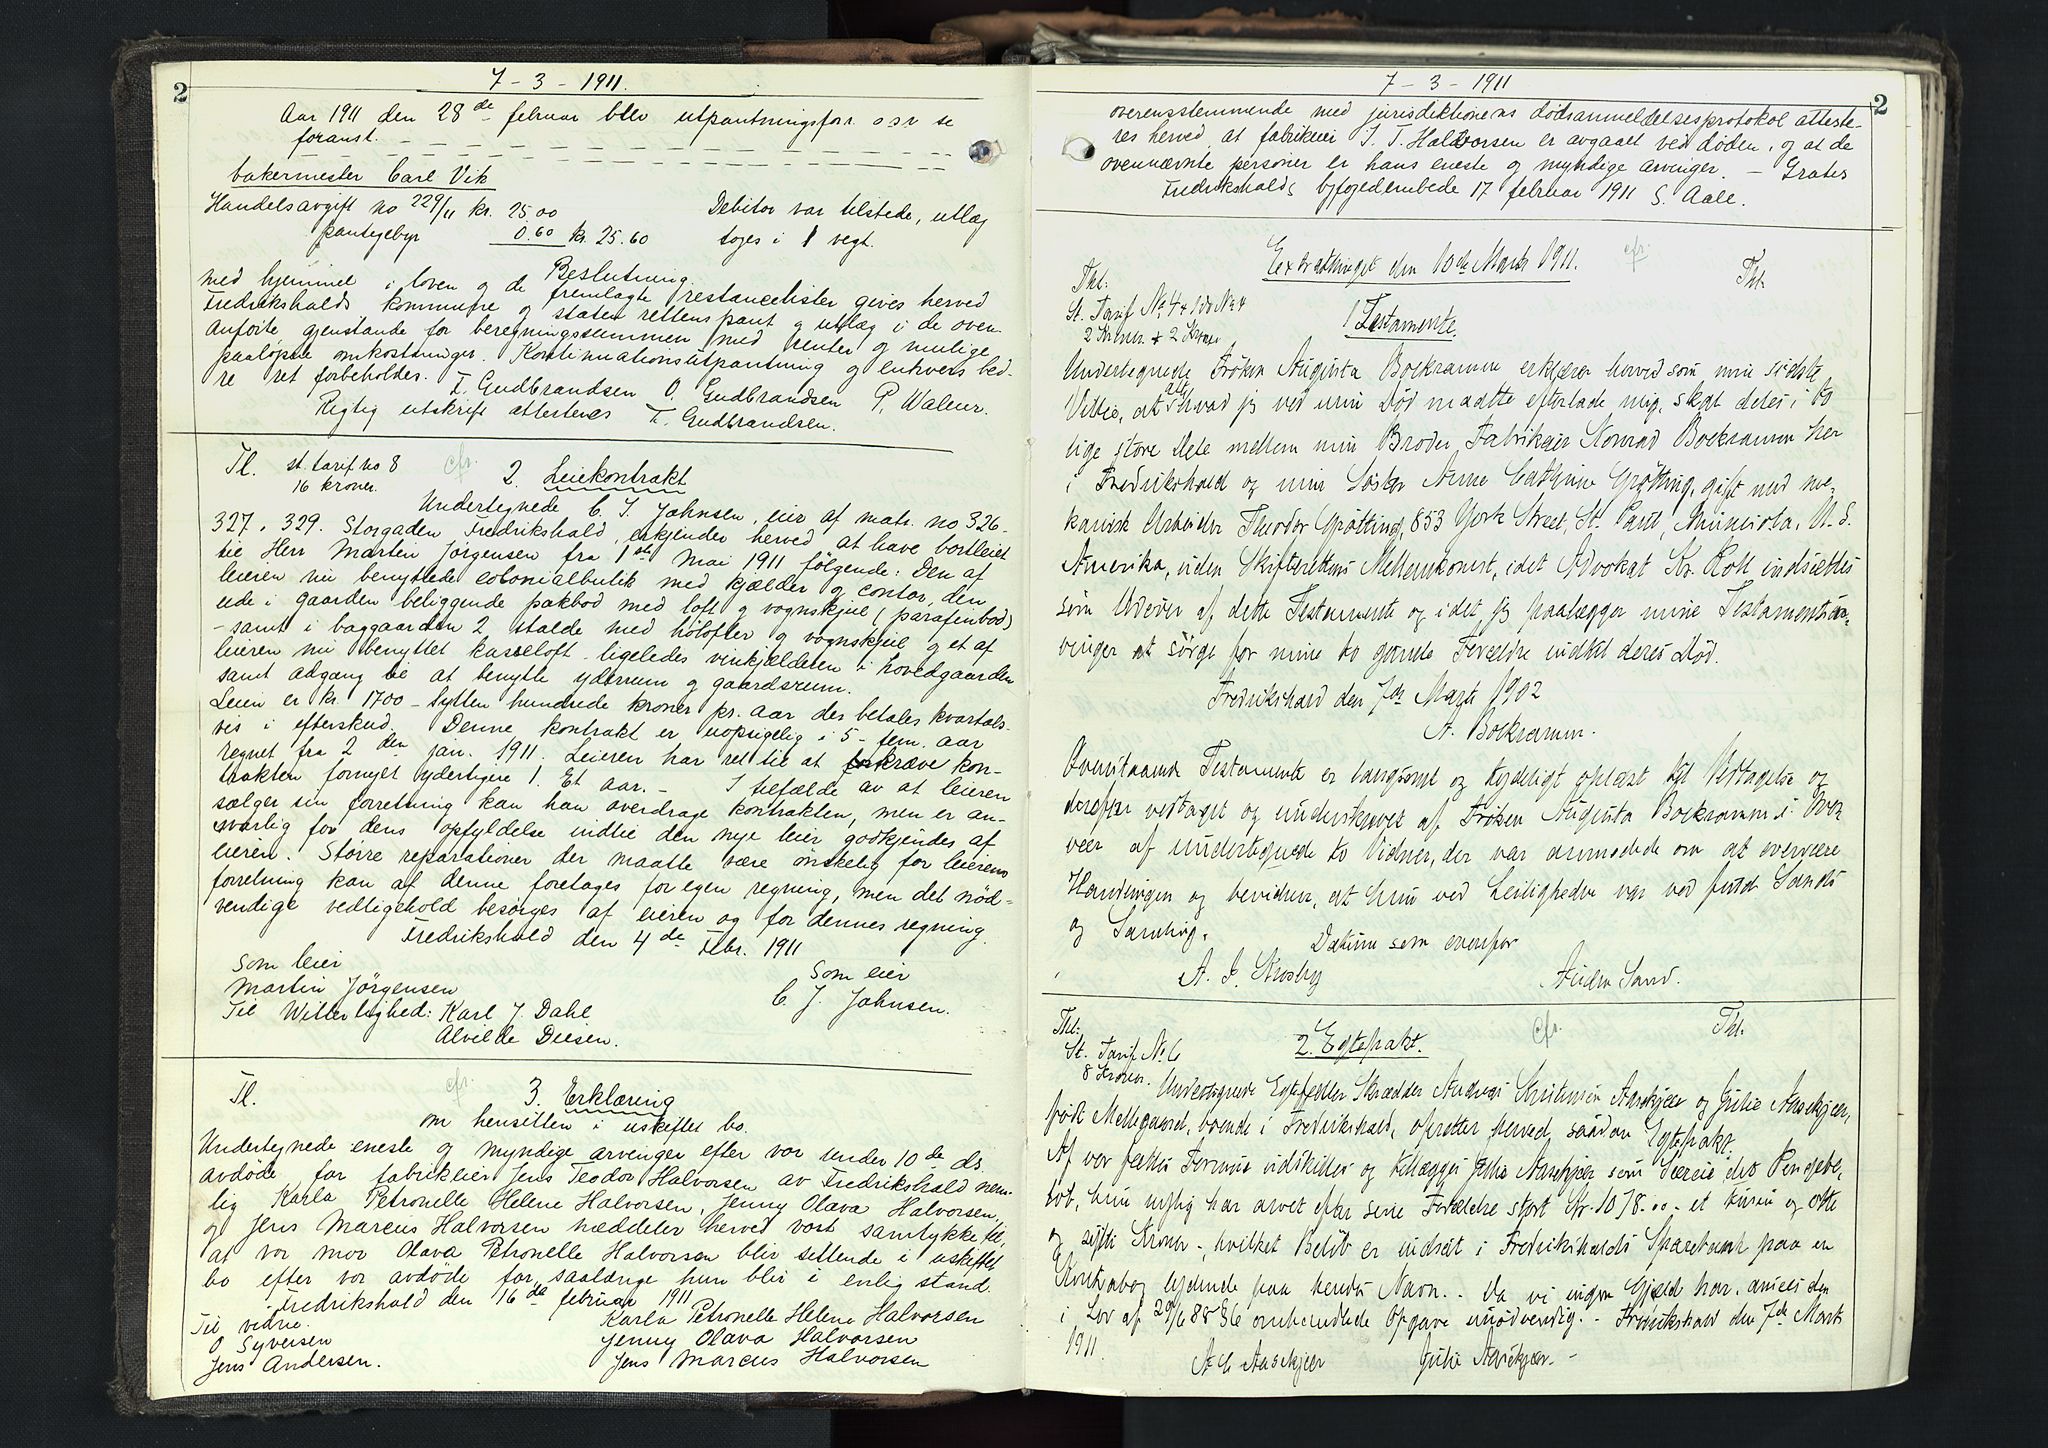 2
7 - 3 - 1911.
Aar 1911 den 28de februar blev utpantningsforr. o s v se
foranst.
bakermester Carl Vik
Handelsavgift no 229/11 kr. 25.00
pantegebyr 0.60 kr. 25.60
Debitor var tilstede, utlæg
toges i 1 vegt.
Beslutning.
Med hjemmel i loven og de fremlagte restancelister gives herved
Fredrikshalds kommune og staten rettens pant og utlæg i de oven
anførte gjenstande for beregningssummen med renter og mulige
paaløpne omkostninger. Kontinuationsutpantning og enhvers bed-
re ret forbeholdes. T. Gudbrandsen O. Gudbrandsen P. Waleur.
Rigtig utskrift attesteres T. Gudbrandsen.
Tl. st. tarif no 8 cfr.
16 kroner.
2. Leiekontrakt
Undertegnede C. J. Johnsen, eier af matr. no 326.
327, 329. Storgaden Fredrikshald, erkjender herved at have bortleiet
til Herr Marten Jørgensen fra 1ste Mai 1911 følgende: Den af
leieren nu benyttede colonialbutik med kjælder og contor, den
ude i gaarden beliggende pakbod med loft og vognskjul (parafenbod)
- samt i baggaarden 2 stalde med høilofter og vognskjul og et af
leieren nu benyttet kasseloft - ligeledes vinkjælderen i hovedgaarden
samt adgang til at benytte yderrum og gaardsrum.
Leien er kr. 1700 - sytten hundrede kroner pr. aar der betales kvartals-
vis i efterskud. Denne kontrakt er uopsigelig i 5 - fem - aar
regnet fra 2den jan. 1911. Leieren har ret til at kræve kon-
trakten fornyet yderligere 1. Et aar. - I tilfælde av at leieren
sælger sin forretning kan han overdrage kontrakten, men er an-
svarlig for dens opfyldelse indtil den nye leier godkjendes af
eieren. Større reparationer der maatte være ønskelig for leierens
forretning kan af denne foretages for egen regning, men det nød-
vendige vedligehold besørges af eieren og for dennes regning.
Fredrikshald den 4de Febr. 1911
Som leier
Martin Jörgensen
Som eier
C J. Johnsen.
Til Witterlighed: Karl J. Dahl
Alvilde Diesen.
Tl. cfr.
3. Erklæring
om hensitten i uskiftet bo.
Undertegnede eneste og myndige arvenger efter vor under 10de ds.
avdøde far fabrikeier Jens Teodor Halvorsen av Fredrikshald nem-
lig Karla Petronelle Helene Halvorsen, Jenny Olava Halvorsen,
og Jens Marcus Halvorsen meddeler herved vort samtykke til,
at vor mor Olava Petronelle Halvorsen blir sittende i uskiftet
bo efter vor avdøde far, saalænge hun blir i enlig stand.
Fredrikshald den 16de februar 1911
Til vidne.
O Syversen
Jens Andersen.
Karla Petronelle Helene Halvorsen
Jenny Olava Halvorsen
Jens Marcus Halvorsen
7 - 3 - 1911
2
overensstemmende med jurisdiktionens dødsanmeldelsesprotokol atteste-
res herved at fabrikeier J. T. Halvorsen er avgaaet ved døden, og at de
ovennævnte personer er hans eneste og myndige arvinger. - Gratis
Fredrikshalds byfogedembede 17 februar 1911 S. Aall.
Extrathinget den 10de Marts 1911. cfr
Thl.
St. Tarif No 4 + No 4
2 Kroner + 2 Kroner
Thl.
1 Testamente.
Undertegnede Frøken Augusta Bockramm erklærer herved som min sidste
Villie, at alt hvad jeg ved min Død maatte efterlade mig, skal deles i to
lige store Dele mellem min Broder, Fabrikeier Konrad Bockramm her
i Fredrikshald og min Søster Anne Cathrine Grøtting, gift med me-
kanisk Arbeider Theodor Grøtting, 853 York Street, St. Paul, Minisota, U. S.
Amerika, uden Skifterettens Mellemkomst, idet Advokat Kr. Holt indsættes
som Udøver af dette Testamente og idet jeg paalægger mine Testamentsar-
vinger at sørge for mine to gamle Forældre indtil deres Død.
Fredrikshald den 7de Marts 1902
A. Bockramm.
Ovenstaaende Testamente er langsomt og tydeligt oplæst til Vedtagelse og
derefter vedtaget og underskrevet af Frøken Augusta Bockramm i Over
vær af undertegnede to Vidner, der var anmodede om at overvære
Handlingen og bevidner, at hun ved Leiligheden var ved fuld Sands
og Samling.
Datum som ovenfor
A. J. Krosby
Sand.
Thl.
St. Tarif No 6
8 Kroner.
cfr. Thl.
2. Egtepakt.
Undertegnede Egtefeller Skrædder Andreas Kristensen Aasekjær og Julie Aasekjær,
født Mellegaard, boende i Fredrikshald, opretter herved saadan Egtepakt:
Af vor fælles Formue udskilles og tillægges Julie Aasekjær som Særeie det Pengebe-
løb, hun nylig har arvet efter sine Forældre stort Kr. 1078.00 - et tusen og otte
og sytti Kroner -, hvilket Beløb er indsat i Fredrikshalds Sparebank paa en
Kontrabog lydende paa hendes Navn. - Da vi ingen Gjæld har, ansees den
i Lov af 29/6 88 § 6 omhandlede Opgave unødvendig. - Fredrikshald den 7de Marts
1911.
A C Aasekjær Julie Aasekjær. -